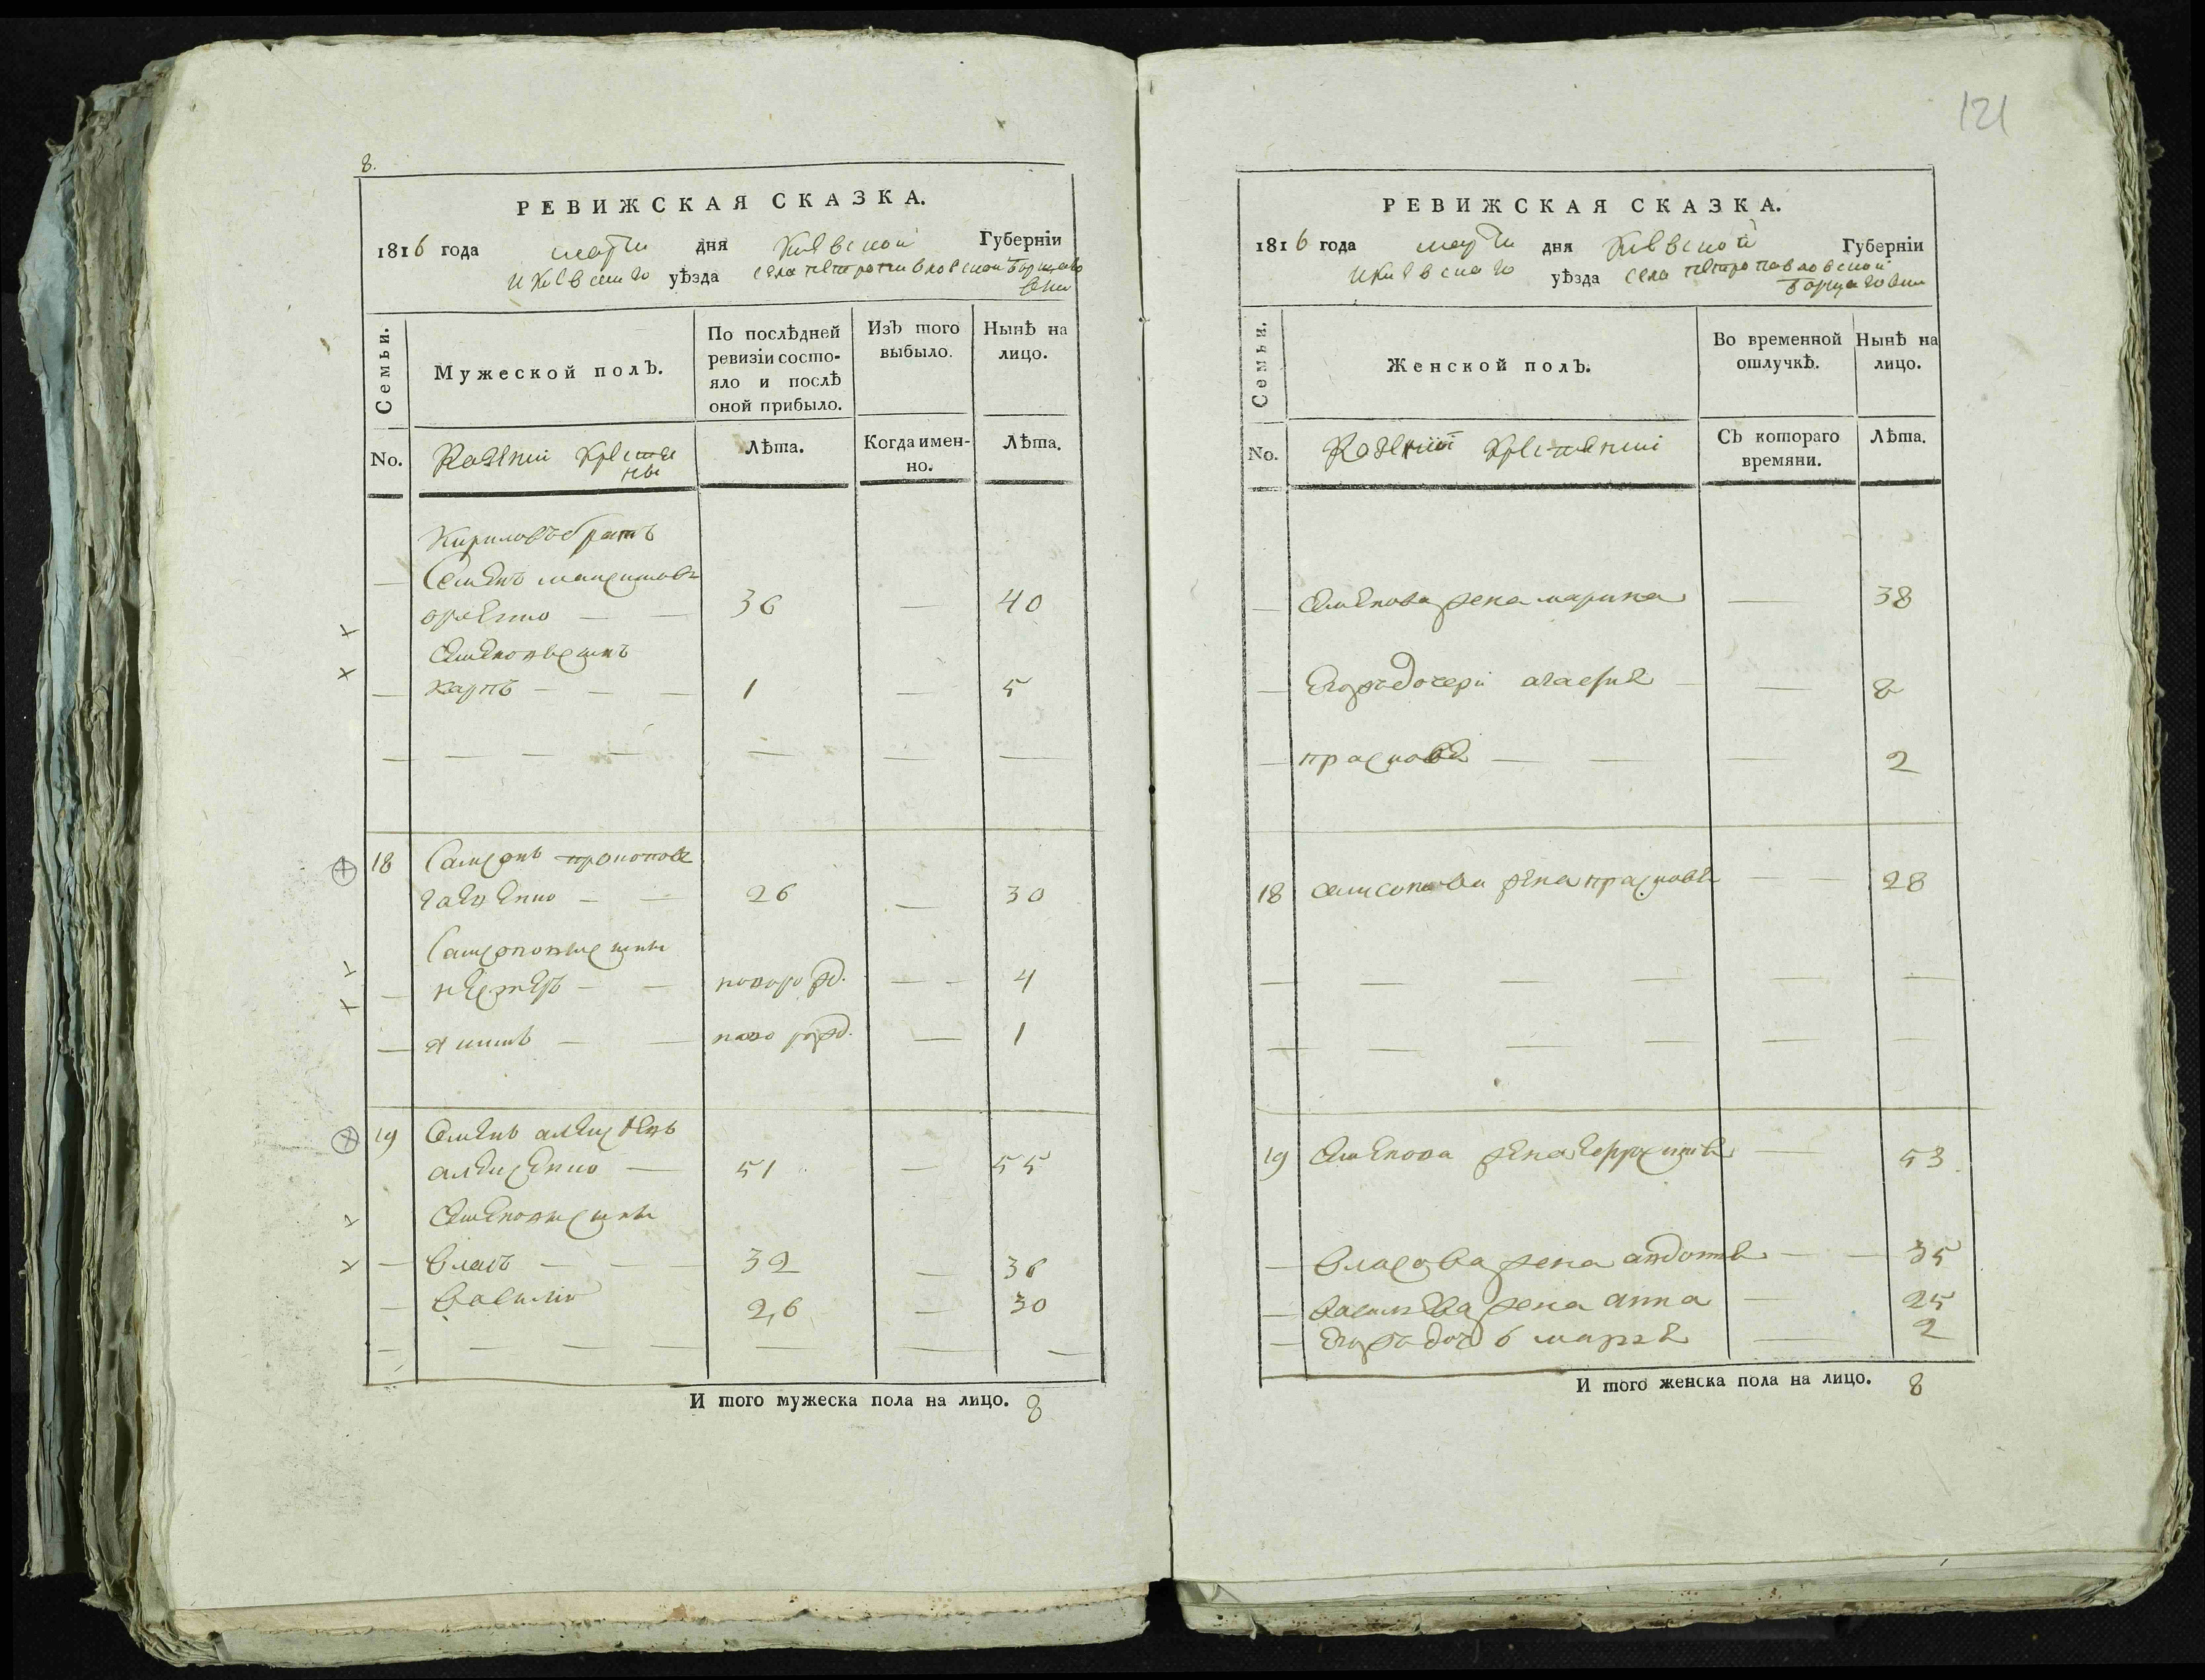 8.
РЕВИЖСКАЯ СКАЗКА.
1816 года марта дня Киевской Губерніи
и Киевскаго уѣзда села петропавловской Борщаго
вки
Семьи.
Мужеской полъ.
По послѣдней
ревизіи состо-
яло и послѣ
оной прибыло.
Изъ того
выбыло.
Нынѣ на
лицо.
No.
Казенни Крестья
ны
Лѣта.
Когда имен-
но.
Лѣта.
Кириловъ братъ
— Семенъ максимовъ
— — 36 — 40
Семеновъ синъ
— карпъ — — — 1 — 5
— — — — — — —
18 Самсонъ прокопов
— — 26 — 30
Самсоновы сины
— несторъ — — новорожд. — — 4
— якимъ — —ново рожд. — 1
19 Семенъ алексеевъ
алексенко — 51 — 55
Семеновы сины
— власъ — — — 32 — 36
— василий 26 — 30
— — — — — — —
И того мужеска пола на лицо. 8
121
РЕВИЖСКАЯ СКАЗКА.
1816 года марта дня Киевской Губерніи
и Киевскаго уѣзда села петропавловской
борщаговки
Семьи.
Женской полъ.
Во временной
отлучкѣ.
Нынѣ на
лицо.
No.
Казенній Крестянки
Съ котораго
времяни.
Лѣта.
— Семенова жена марина — 38
— Егожъ дочери агафия — — 8
— прасковя — — — 2
18 самсонова жена прасковя — — 28
— — — — — — —
— — — — — — —
19 Семенова жена — 53
— власова жена авдотя — — 35
— василева жена анна — 25
— Егожъ дочь марья — 2
И того женска пола на лицо. 8